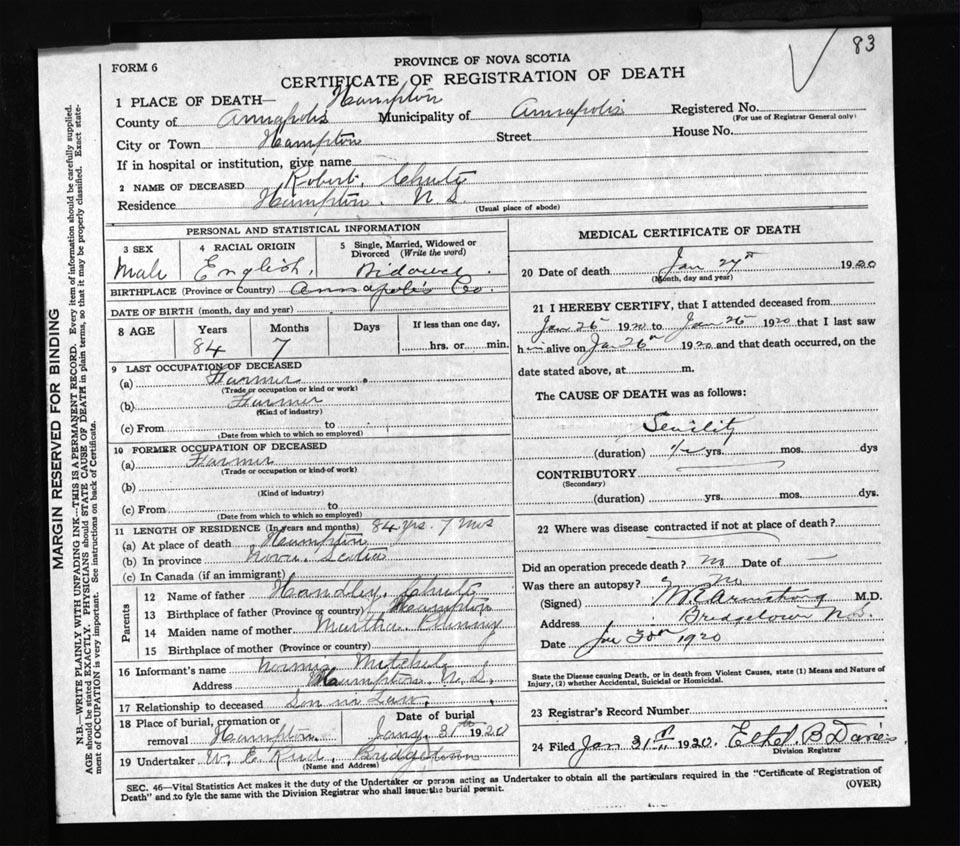 83
FORM 6
PROVINCE OF NOVA SCOTIA
CERTIFICATE OF REGISTRATION OF DEATH
1 PLACE OF DEATH— Hampton
County of Annapolis Municipality of Annapolis Registered No.
(For use of Registrar General only)
City or Town Hampton Street House No.
If in hospital or institution, give name
2 NAME OF DECEASED Robert. Chute
Residence Hampton. N. S.
(Usual place of abode)
PERSONAL AND STATISTICAL INFORMATION
3 SEX 4 RACIAL ORIGIN 5 Single, Married, Widowed or Divorced (Write the word)
Male English, Widower.
BIRTHPLACE (Province or Country) Annapolis Co.
DATE OF BIRTH (month, day and year)
8 AGE Years Months Days If less than one day,
84 7 hrs. or min.
9 LAST OCCUPATION OF DECEASED
(a) Farmer
(Trade or occupation or kind or work)
(b) Farmer
(Kind of industry)
(c) From to
(Date from which to which so employed)
10 FORMER OCCUPATION OF DECEASED
(a) Farmer
(Trade or occupation or kind of work)
(b)
(Kind of industry)
(c) From to
(Date from which to which so employed)
11 LENGTH OF RESIDENCE (In years and months) 84 yrs. 7 mos
(a) At place of death Hampton
(b) In province Nova Scotia
(c) In Canada (if an immigrant)
Parents
12 Name of father Handley. Chute
13 Birthplace of father (Province or country) Hampton
14 Maiden name of mother Martha
15 Birthplace of mother (Province or country)
16 Informant's name Norman Mitchell
Address Hampton. N. S.
17 Relationship to deceased Son in Law.
18 Place of burial, cremation or removal Hampton. Date of burial Jany. 31st 1920
19 Undertaker W. E. Reed, Bridgetown
(Name and Address)
MEDICAL CERTIFICATE OF DEATH
20 Date of death Jan 29th 1920
(Month, day and year)
21 I HEREBY CERTIFY, that I attended deceased from
Jan 26th 1920 to Jan 26th 1920 that I last saw
him alive on Jan 26th 1920 and that death occurred, on the
date stated above, at m.
The CAUSE OF DEATH was as follows:
Senility
(duration) yrs. mos. dys
CONTRIBUTORY
(Secondary)
(duration) yrs. mos. dys.
22 Where was disease contracted if not at place of death?
Did an operation precede death? No Date of
Was there an autopsy? No
(Signed) M E Armstrong M.D.
Address Bridgetown N.S.
Date Jan 30th 1920
State the Disease causing Death, or in death from Violent Causes, state (1) Means and Nature of
Injury, (2) whether Accidental, Suicidal or Homicidal.
23 Registrar's Record Number
24 Filed Jan 31st 1920. Ethel. B Davies.
Division Registrar
SEC. 46—Vital Statistics Act makes it the duty of the Undertaker or person acting as Undertaker to obtain all the particulars required in the "Certificate of Registration of
Death" and to fyle the same with the Division Registrar who shall issue the burial permit.
(OVER)
MARGIN RESERVED FOR BINDING
N.B.—WRITE PLAINLY WITH UNFADING INK—THIS IS A PERMANENT RECORD. Every item of information should be carefully supplied.
AGE should be stated EXACTLY. PHYSICIANS should STATE CAUSE OF DEATH in plain terms, so that it may be properly classified. Exact state-
ment of OCCUPATION is very important. See instructions on back of Certificate.